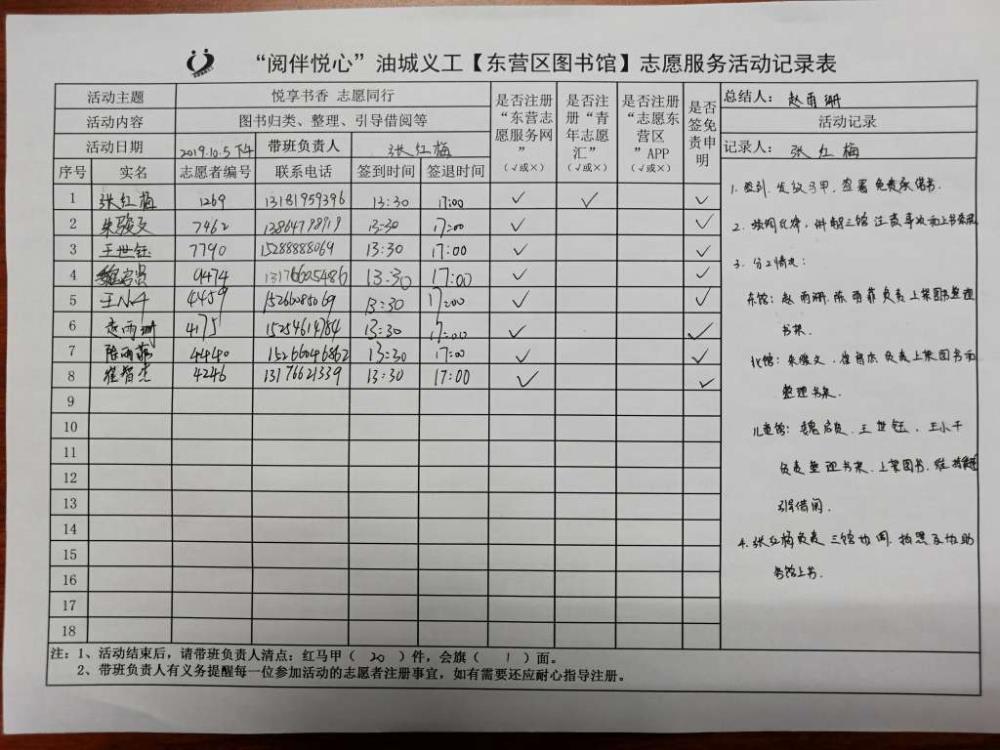 “阅伴悦心”油城义工【东营区图书馆】志愿服务活动记录表
活动主题 悦享书香 志愿同行
活动内容 图书归类、整理、引导借阅等
活动日期 2019.10.5下午 带班负责人 张红梅
序号 实名 志愿者编号 联系电话 签到时间 签退时间
是否注册“东营志愿服务网” (√或×)
是否注册“青年志愿汇” (√或×)
是否注册“志愿东营区”APP (√或×)
是否签免责申明
1 张红梅 1269 13181959396 13:30 17:00 √ √ √
2 朱骏文 7462 13:30 17:00 √ √
3 王世钰 7790 15288888069 13:30 17:00 √ √
4 魏启贤 9474 13176605486 13:30 17:00 √ √
5 王小千 4459 15266085069 13:30 17:00 √ √
6 赵雨珊 4175 15254614784 13:30 17:00 √ √
7 陈雨菲 4440 15266046862 13:30 17:00 √ √
8 崔智杰 4246 13176621339 13:30 17:00 √ √
9
10
11
12
13
14
15
16
17
18
总结人： 赵雨珊
活动记录
记录人： 张红梅
1. 签到、发放马甲、签署免责承诺书.
2. 强调纪律，讲解三馆注意事项和上书
3. 分工情况：
东馆：赵雨珊.陈雨菲负责上架图书整理
书架.
北馆：朱骏文，崔智杰负责上架图书和
整理书架.
儿童馆：魏启贤.王世钰，王小千
负责整理书架.上架图书.维持
引导借阅.
4.张红梅负责三馆协调.拍照及协助
书馆上书.
注：1、活动结束后，请带班负责人清点：红马甲（ 20 ）件，会旗（ 1 ）面。
2、带班负责人有义务提醒每一位参加活动的志愿者注册事宜，如有需要还应耐心指导注册。